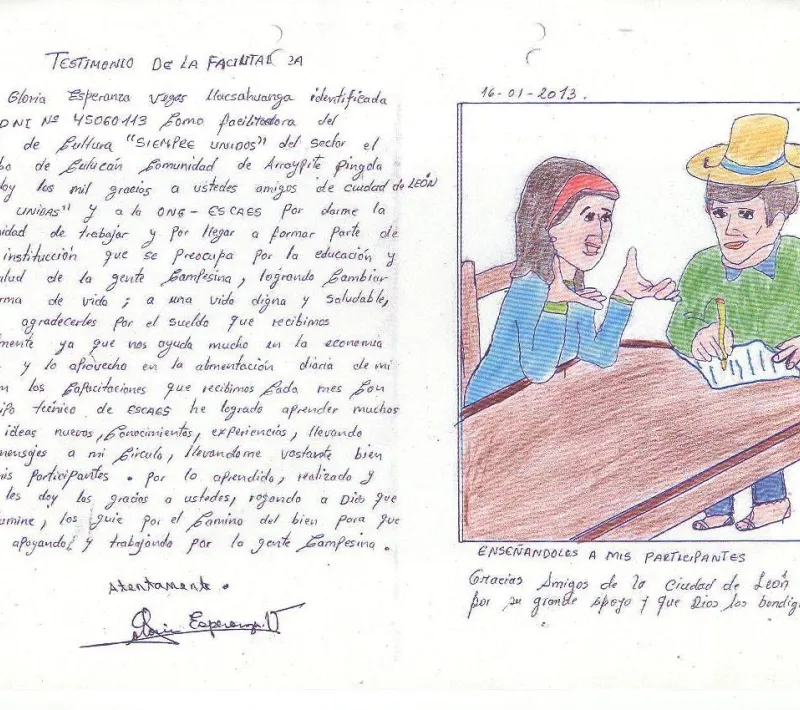 TESTIMONIO DE LA FACILITAD RA
Gloria Esperanza Vegas Llacsahuanga identificada
DNI Nº 45060113 Como facilitadora del
de Cultura "SIEMPRE UNIDOS" del sector el
bo de Culucán Comunidad de Arraypite pingola
oy las mil gracias a ustedes amigos de ciudad de LEÓN
UNIDAS" y a la ONG-ESCAES Por darme la
nidad de trabajar y por llegar a formar parte de
institucción que se preocupa por la educación y
alud de la gente Campesina, logrando Cambiar
rma de vida; a una vida digna y saludable,
agradecerles por el sueldo que recibimos
lmente ya que nos ayuda mucho en la economía
y lo aprovecho en la alimentación diaria de mi
n las Capacitaciones que recibimos Cada mes Con
ipo técnico de ESCAES he logrado aprender muchos
ideas nuevas, Conocimientos, experiencias, llevando
mensajes a mi Círculo, llevandome vastante bien
mis Participantes. Por lo aprendido, realizado y
les doy las gracias a ustedes, rogando a Dios que
umine, los guie por el Camino del bien para que
apoyando y trabajando por la gente Campesina.
Atentamente.
Gloria Esperanza V
16-01-2013.
ENSEÑANDOLES A MIS PARTICIPANTES
Gracias Amigos de la Ciudad de León
por su grande apoyo y que Dios los bendig